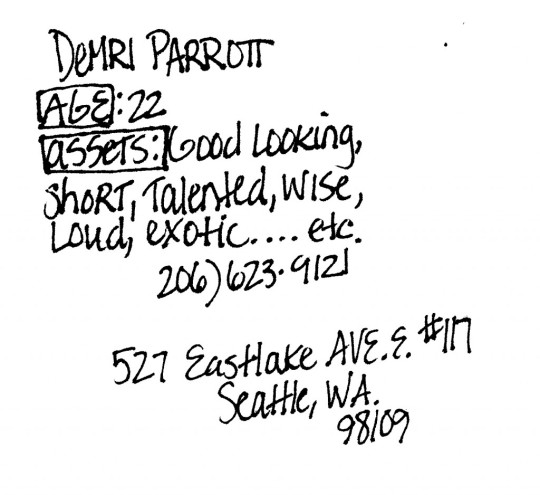 DEMRI PARROTT
AGE: 22
assets: Good Looking,
ShoRT, Talented, Wise,
Loud, exotic.... etc.
206) 623-9121
527 Eastlake AVE. E. #117
Seattle, WA.
98109